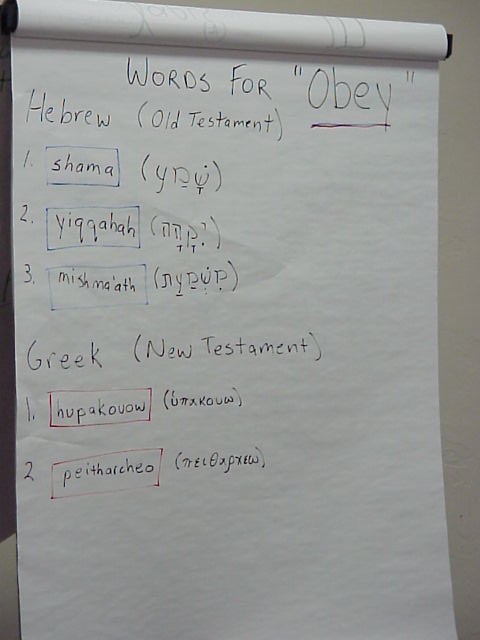 WORDS FOR "Obey"
Hebrew (Old Testament)
1. shama (שָׁמַע)
2. yiqqahah (יִקָּהָה)
3. mishma'ath (מִשְׁמַעַת)
Greek (New Testament)
1. hupakouow (ὑπακουω)
2 peitharcheo (πειθαρχεω)